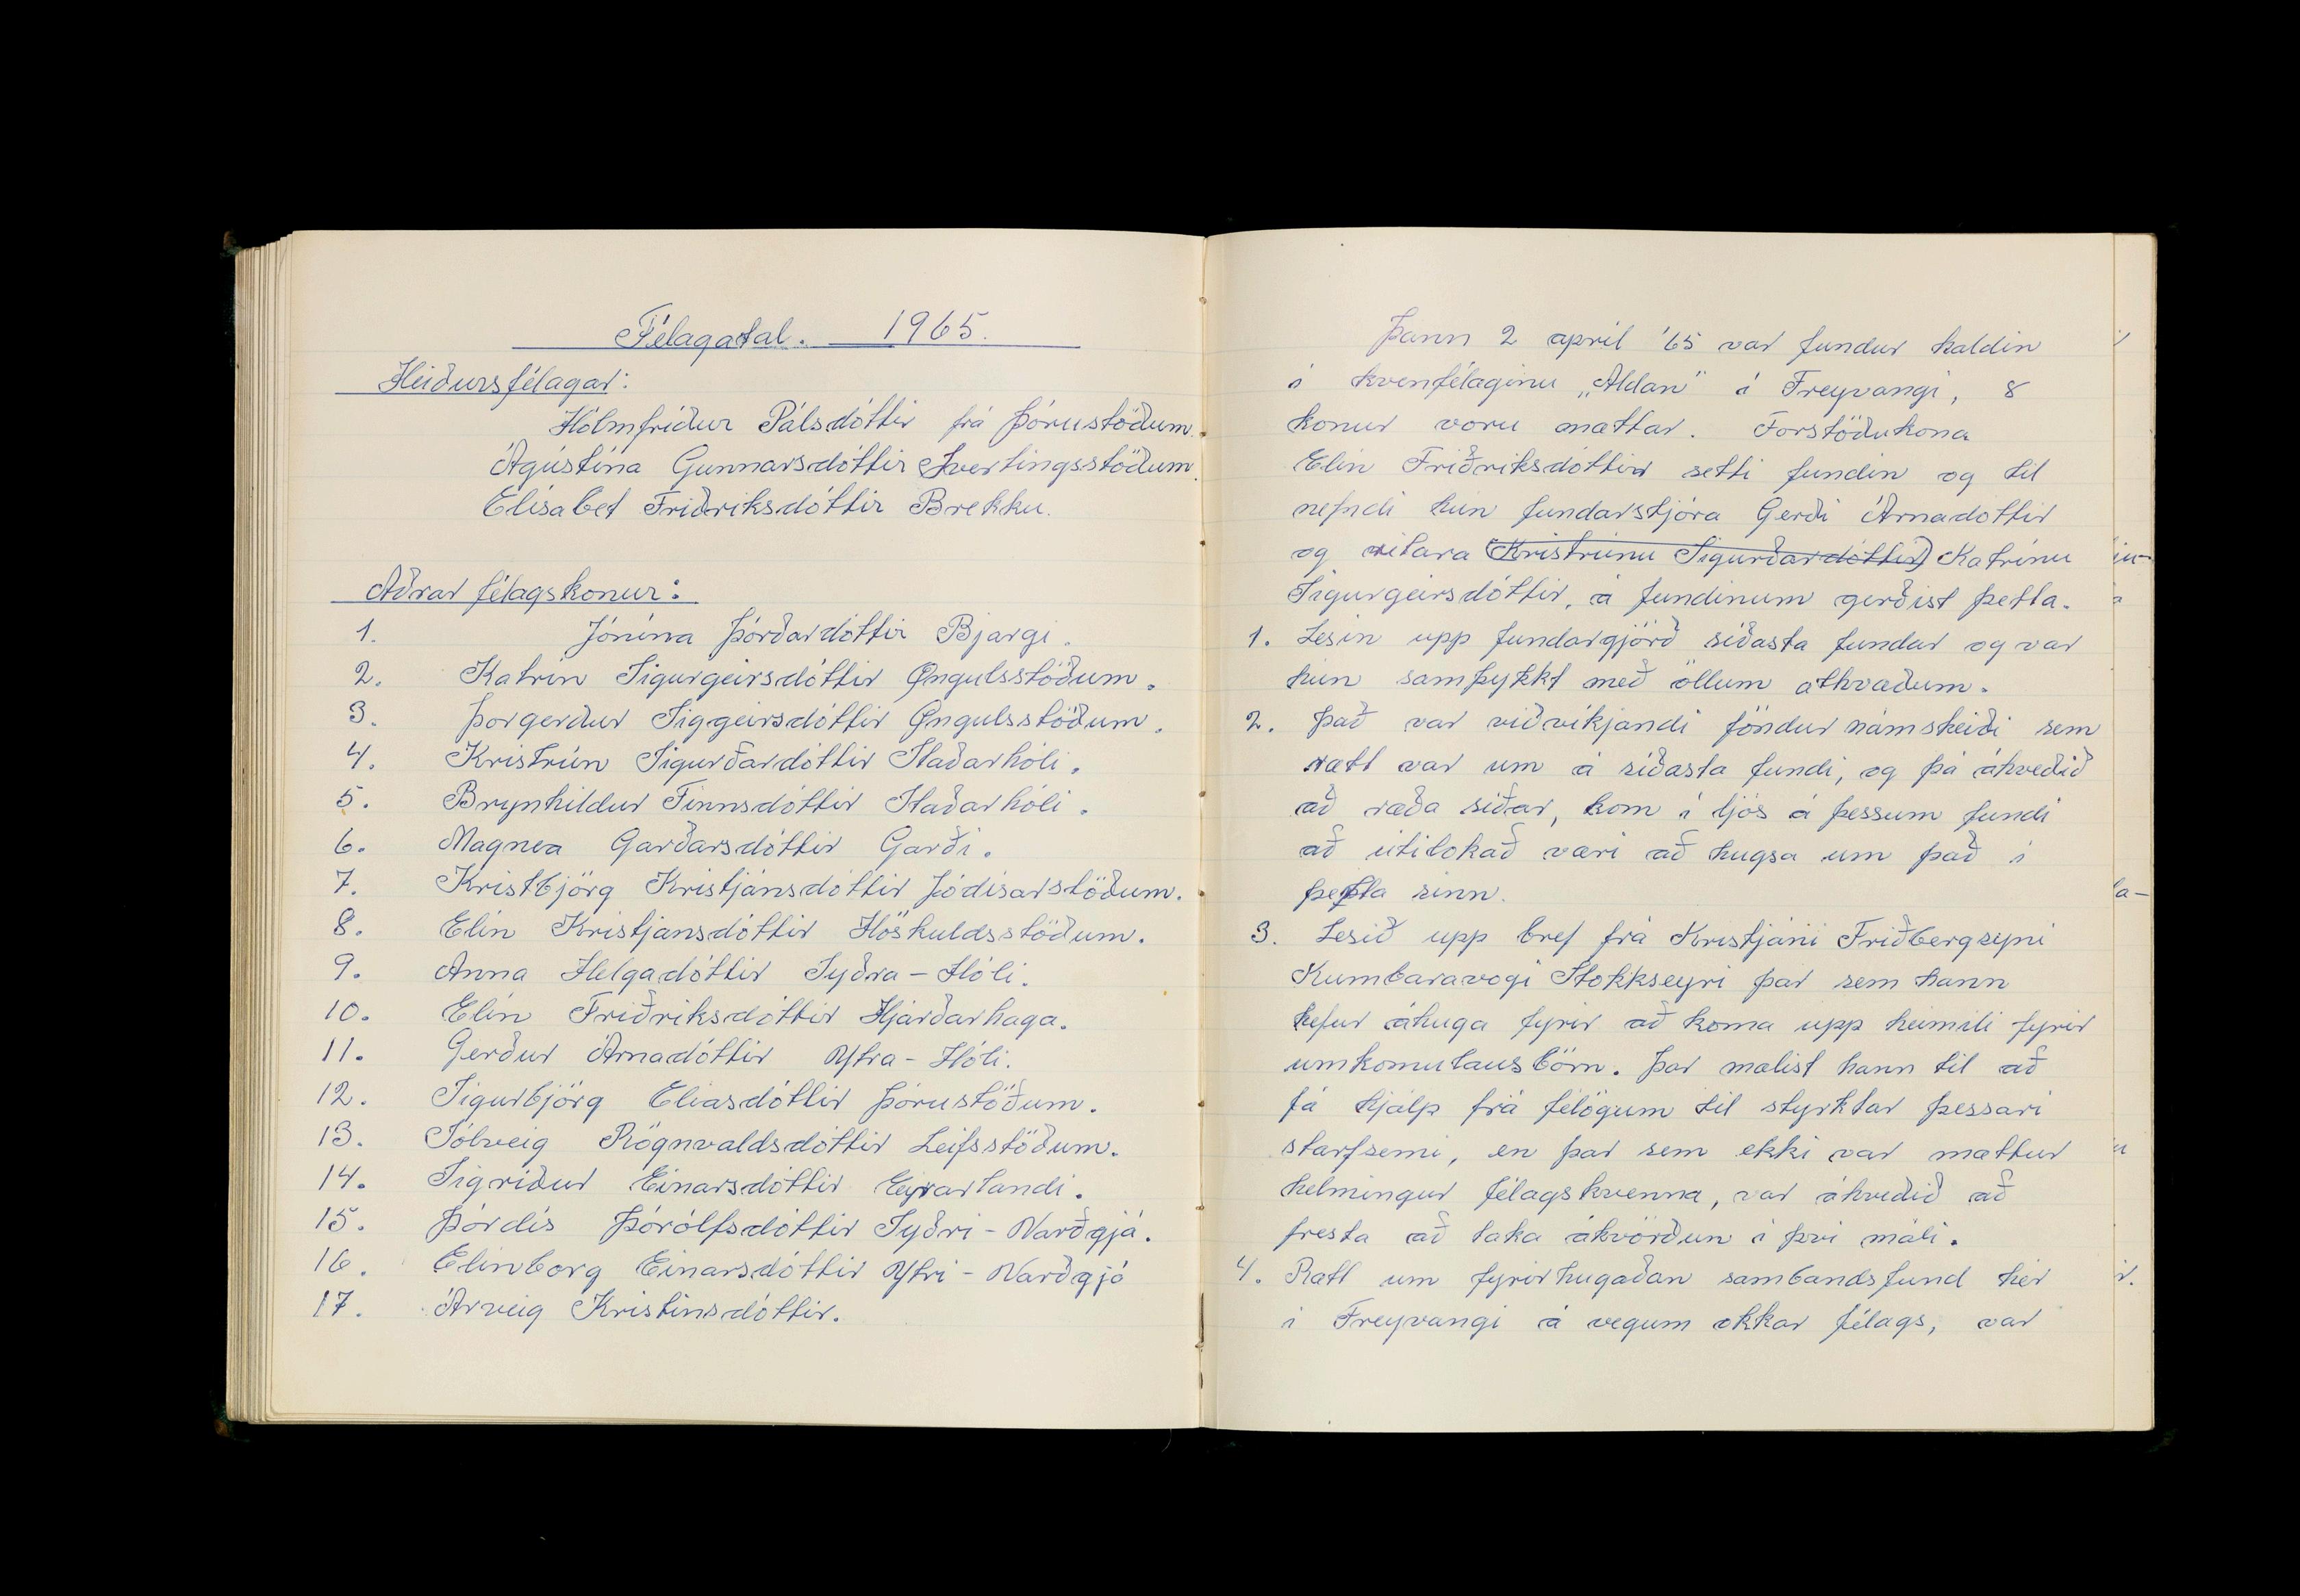 Félagatal. 1965.
Heiðursfélagar:
Hólmfríður Pálsdóttir frá Þórustöðum.
Ágústína Gunnarsdóttir Svertingsstöðum.
Elísabet Friðriksdóttir Brekku.
Aðrar félagskonur:
1. Jónína Þórðardóttir Bjargi.
2. Katrín Sigurgeirsdóttir Öngulsstöðum.
3. Þorgerður Siggeirsdóttir Öngulsstöðum.
4. Kristrún Sigurðardóttir Staðarhóli.
5. Brynhildur Finnsdóttir Staðarhóli.
6. Magnea Garðarsdóttir Garði.
7. Kristbjörg Kristjánsdóttir Jódísarstöðum.
8. Elín Kristjansdóttir Höskuldsstöðum.
9. Anna Helgadóttir Syðra-Hóli.
10. Elín Friðriksdóttir Hjarðarhaga.
11. Gerður Árnadóttir Ytra-Hóli.
12. Sigurbjörg Elíasdóttir Þórustöðum.
13. Sólveig Rögnvaldsdóttir Leifsstöðum.
14. Sigríður Einarsdóttir Eyrarlandi.
15. Þórdís Þórólfsdóttir Syðri-Varðgjá.
16. Elinborg Einarsdóttir Ytri-Varðgjá
17. Árveig Kristinsdóttir.
Þann 2 apríl '65 var fundur haldin
í kvenfélaginu „Aldan" í Freyvangi, 8
konur voru mættar. Forstöðukona
Elín Friðriksdóttir setti fundin og til
nefndi hún fundarstjóra Gerði Árnadóttir
og ritara (Kristrúnu Sigurðardóttir) Katrínu
Sigurgeirsdóttir, á fundinum gerðist þetta.
1. Lesin upp fundargjörð síðasta fundar og var
hún samþykkt með öllum atkvæðum.
2. Það var viðvíkjandi föndur námskeiði sem
rætt var um á síðasta fundi, og þá ákveðið
að ræða síðar, kom í ljós á þessum fundi
að útilokað væri að hugsa um það í
þetta sinn.
3. Lesið upp bref frá Kristjáni Friðbergsyni
Kumbaravogi Stokkseyri þar sem hann
hefur áhuga fyrir að koma upp heimili fyrir
umkomulaus börn. Þar mælist hann til að
fá hjálp frá félögum til styrktar þessari
starfsemi, en þar sem ekki var mættur
helmingur félagskvenna, var ákveðið að
fresta að taka ákvörðun í því máli.
4. Rætt um fyrirhugaðan sambandsfund hér
í Freyvangi á vegum okkar félags, var